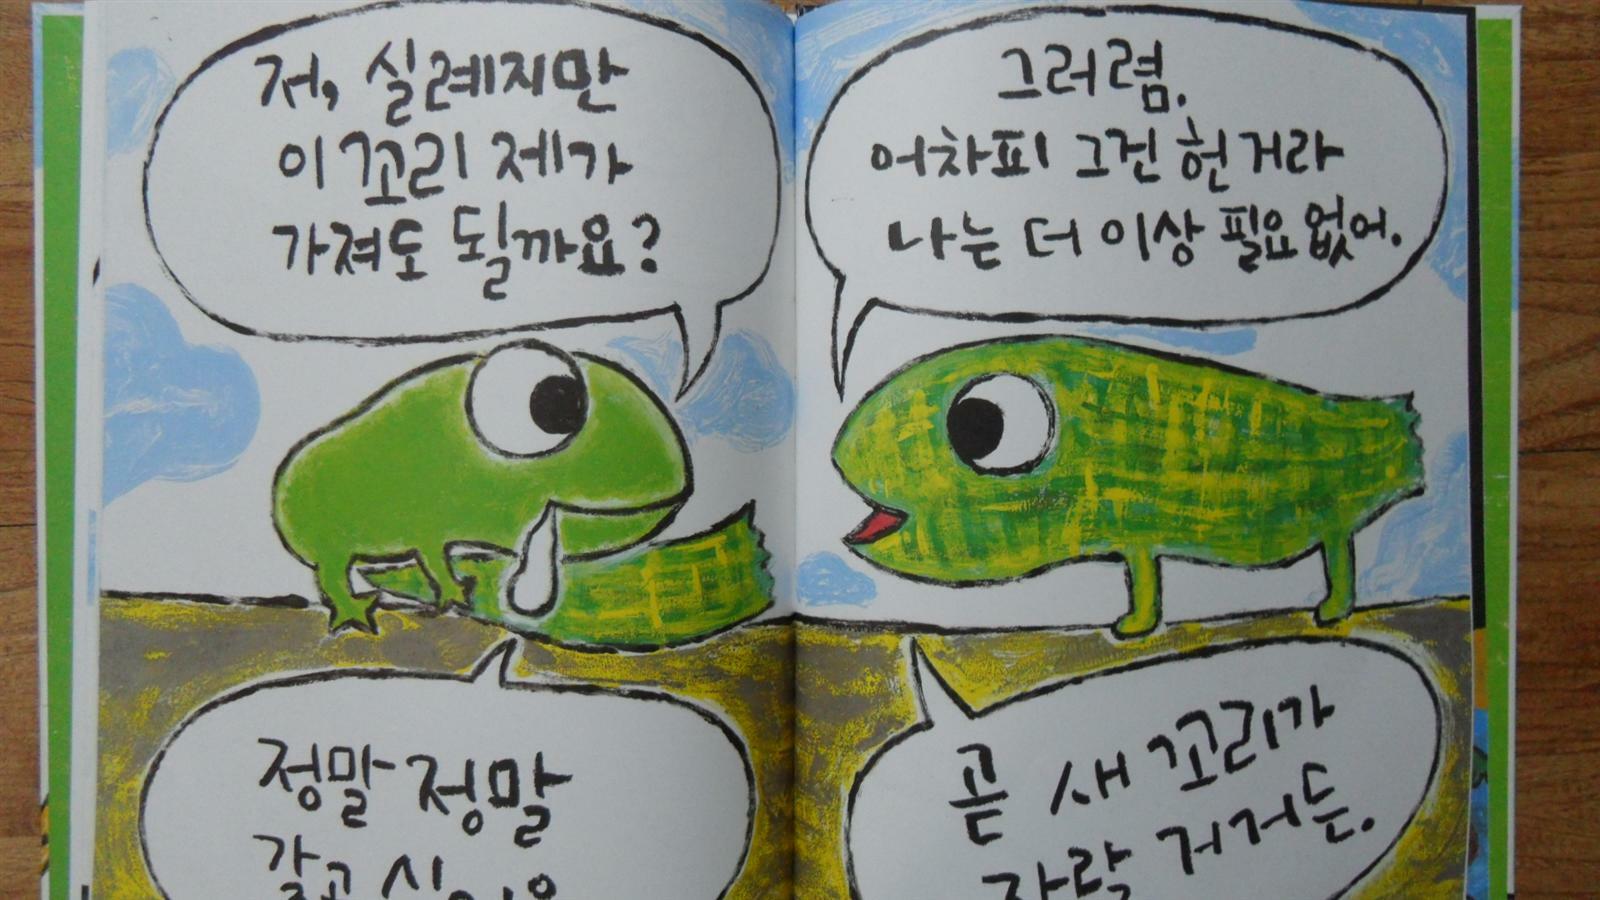 저, 실례지만
이 꼬리 제가
가져도 될까요?
그러렴.
어차피 그건 헌거라
나는 더 이상 필요 없어.
정말 정말
갖고 싶어요
곧 새 꼬리가
자랄 거거든.